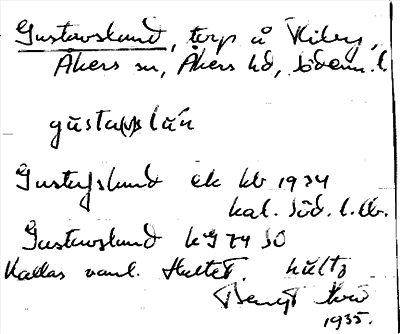 Gustavslund, torp å Viby,
Åkers sn, Åkers hd, Söderm. l.
gùsta(v)slùn
Gustafslund ek kb 1934
kal. Söd. l. kb.
Gustavslund kg 74 SO
Kallas vanl. Hultet. hùltə
Bengt
1935.